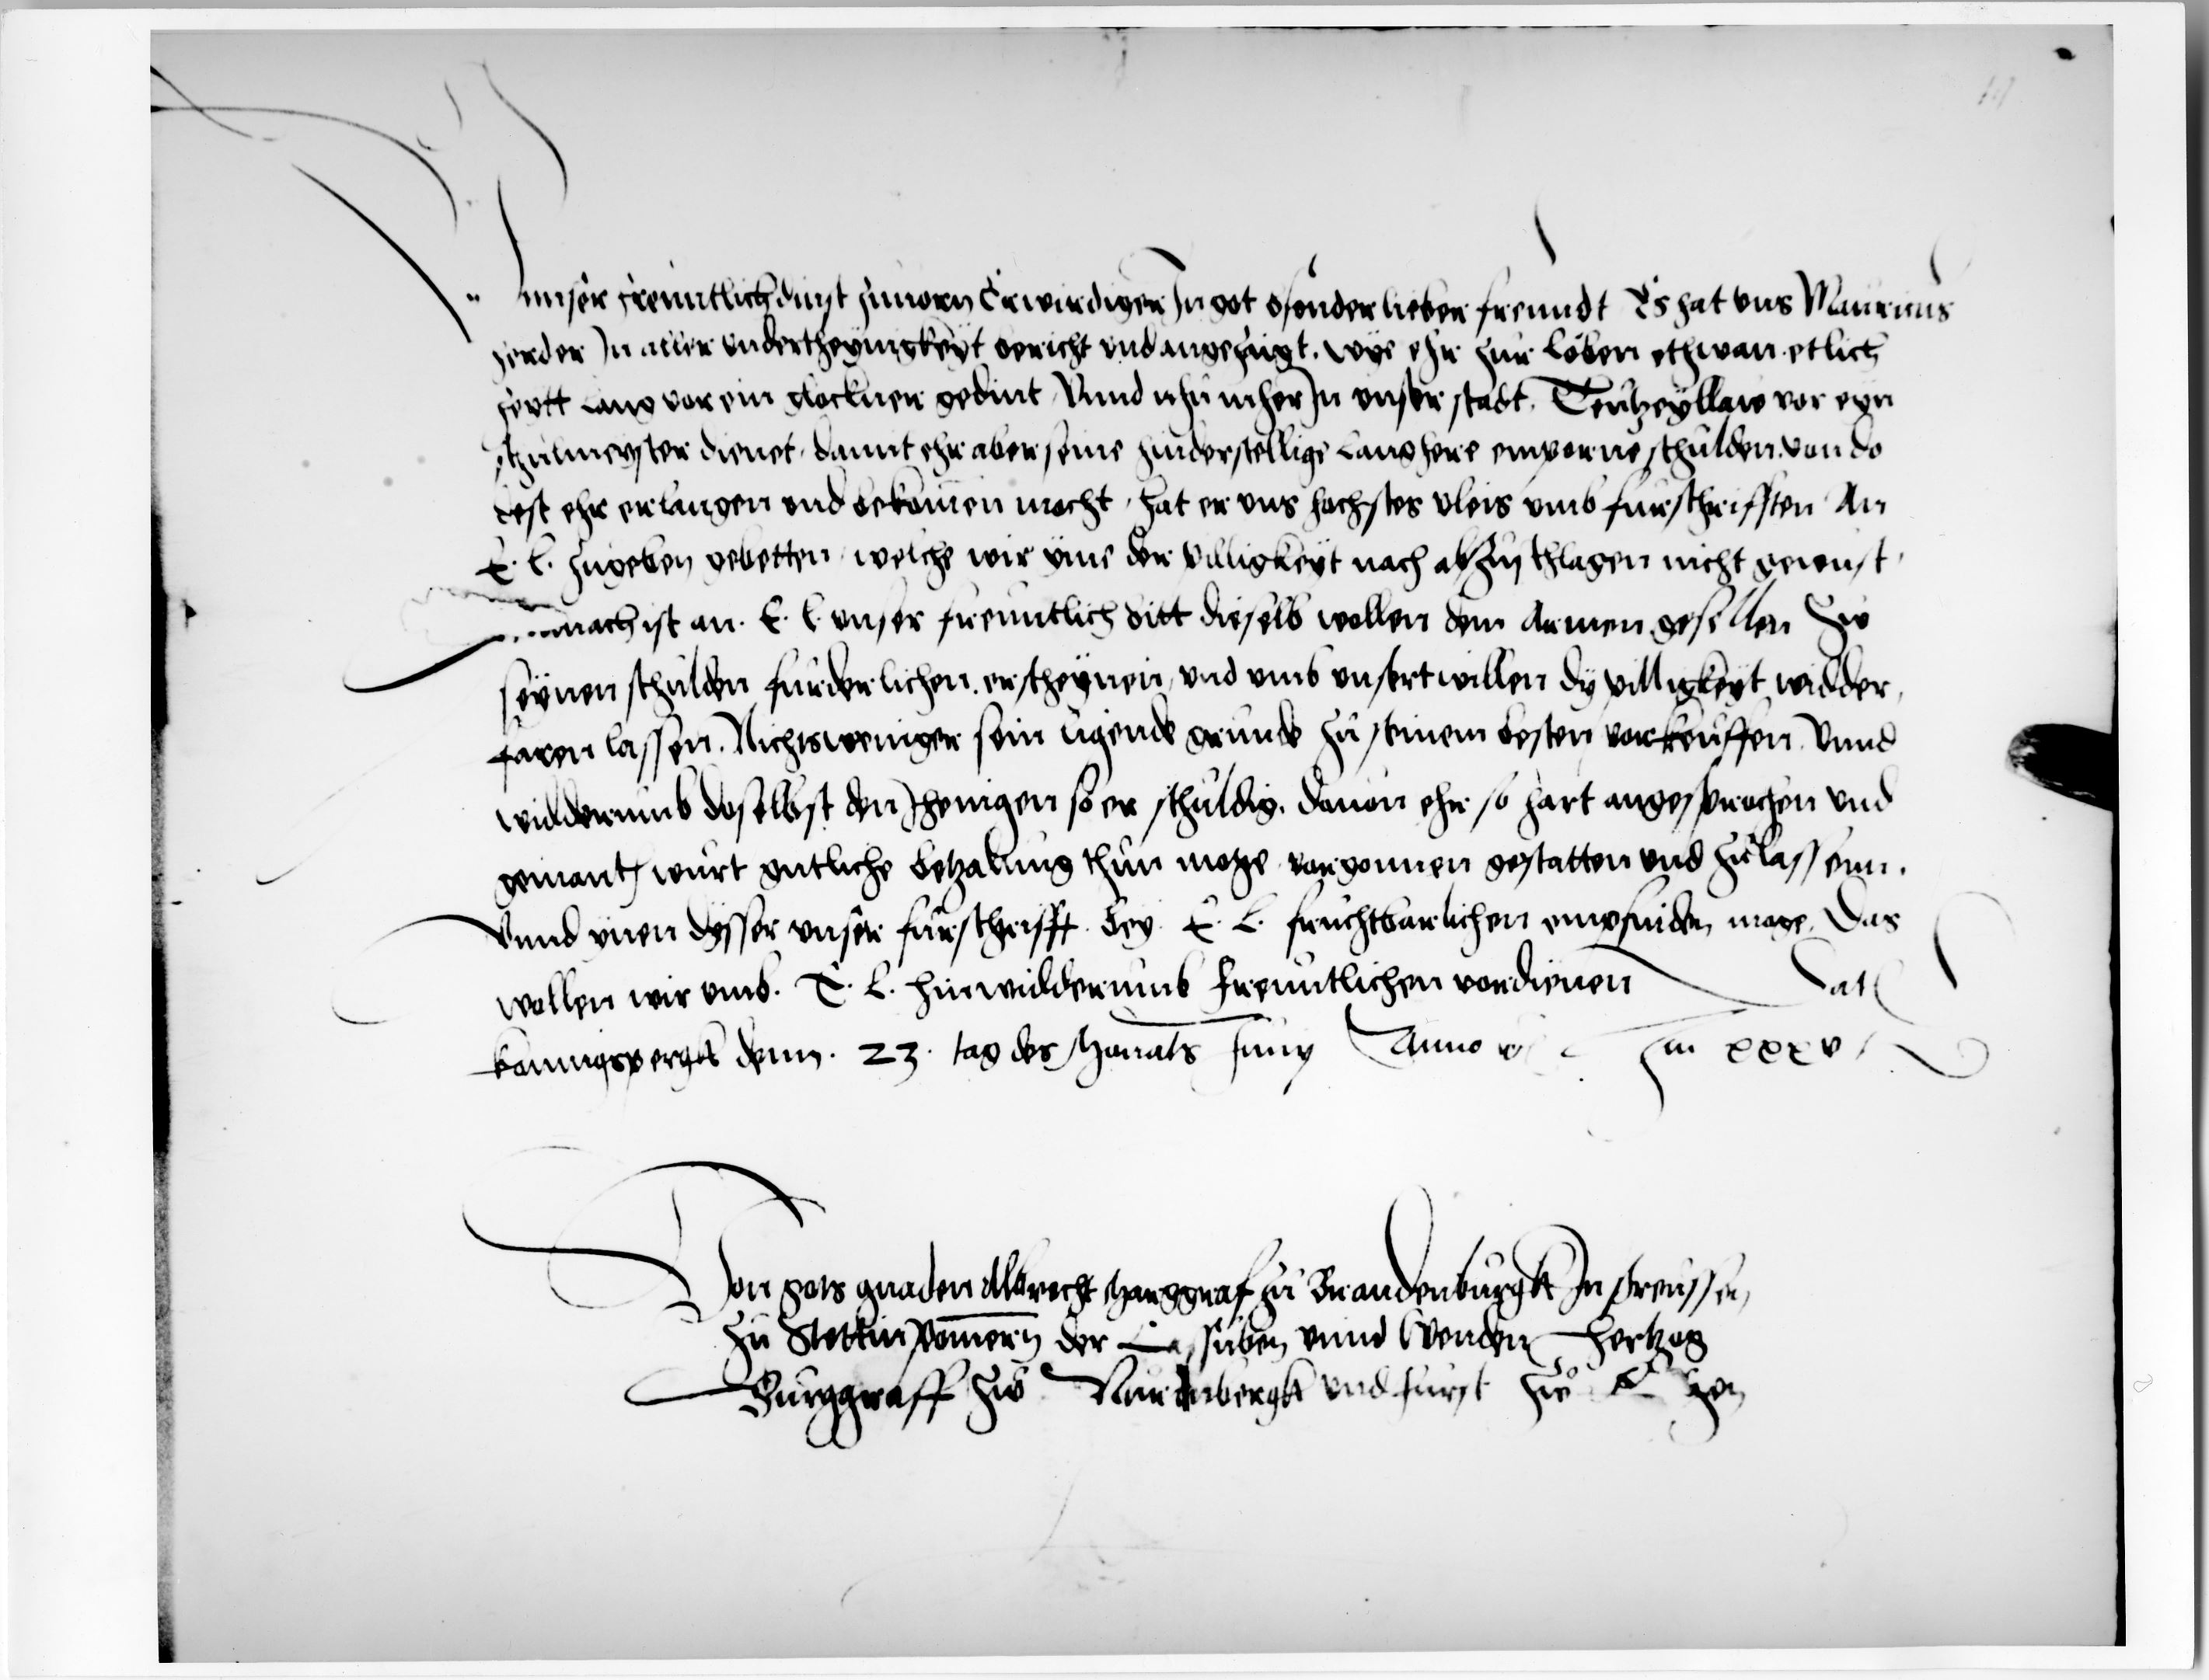 Vnnser freuntlich dinst zuuorn Erwirdiger In got bsonder lieber freundt Es hat vns Mauricius
In aller vndertheynigkeyt bericht vnd angezeigt. wye ehr zur Loben ethwan etlich
zeytt lang vor ein glockner gedint Vnnd nhu mher In vnser stadt, Teutzeyllaw vor eyn
schulmeyster dienet, damit ehr aber seine hinderstellige lang here schulden von do
dest ehr erlangen vnd bekomen mocht, hat er vns hochstes vleis vmb furschrifften An
E. L. zugeben gebetten, welche wir yme der billigkeyt nach abzuschlagen nicht gewust,
Demnach ist an. E. L. vnser freuntlich bitt dieselb wollen dem Armen gesellen Zw
seynen schulden furderlichen erscheynen, vnd vmb vnsertwillen dy pilligkeyt widder,
faren lassen. Nichtsweniger sein ligende grunde zu seinem besten vorkeuffen Vnnd
widderumb doselbst den Jhenigen so er schuldig. dauon ehr so hart angesprochen vnd
gemant wurt gutliche betzalung thun moge vorgonnen gestatten vnd zulassenn.
Vnnd ynen dysser vnser furschrifft. bey. E. L. fruchtbarlichen empfinden moge, Das
wollen wir vmb. E. L. hinwidderumb freuntlichen vordienen Dat
konnigspergk denn. 23. tag des Monats Juny Anno im xxxv
Von gots gnaden Albrecht Marggraf zu Brandenburgk In Preussen,
zu Stettin Pomern der Cassuben vnnd Wenden Hertzog
Burggraff zw Nurmbergk vnd furst zw